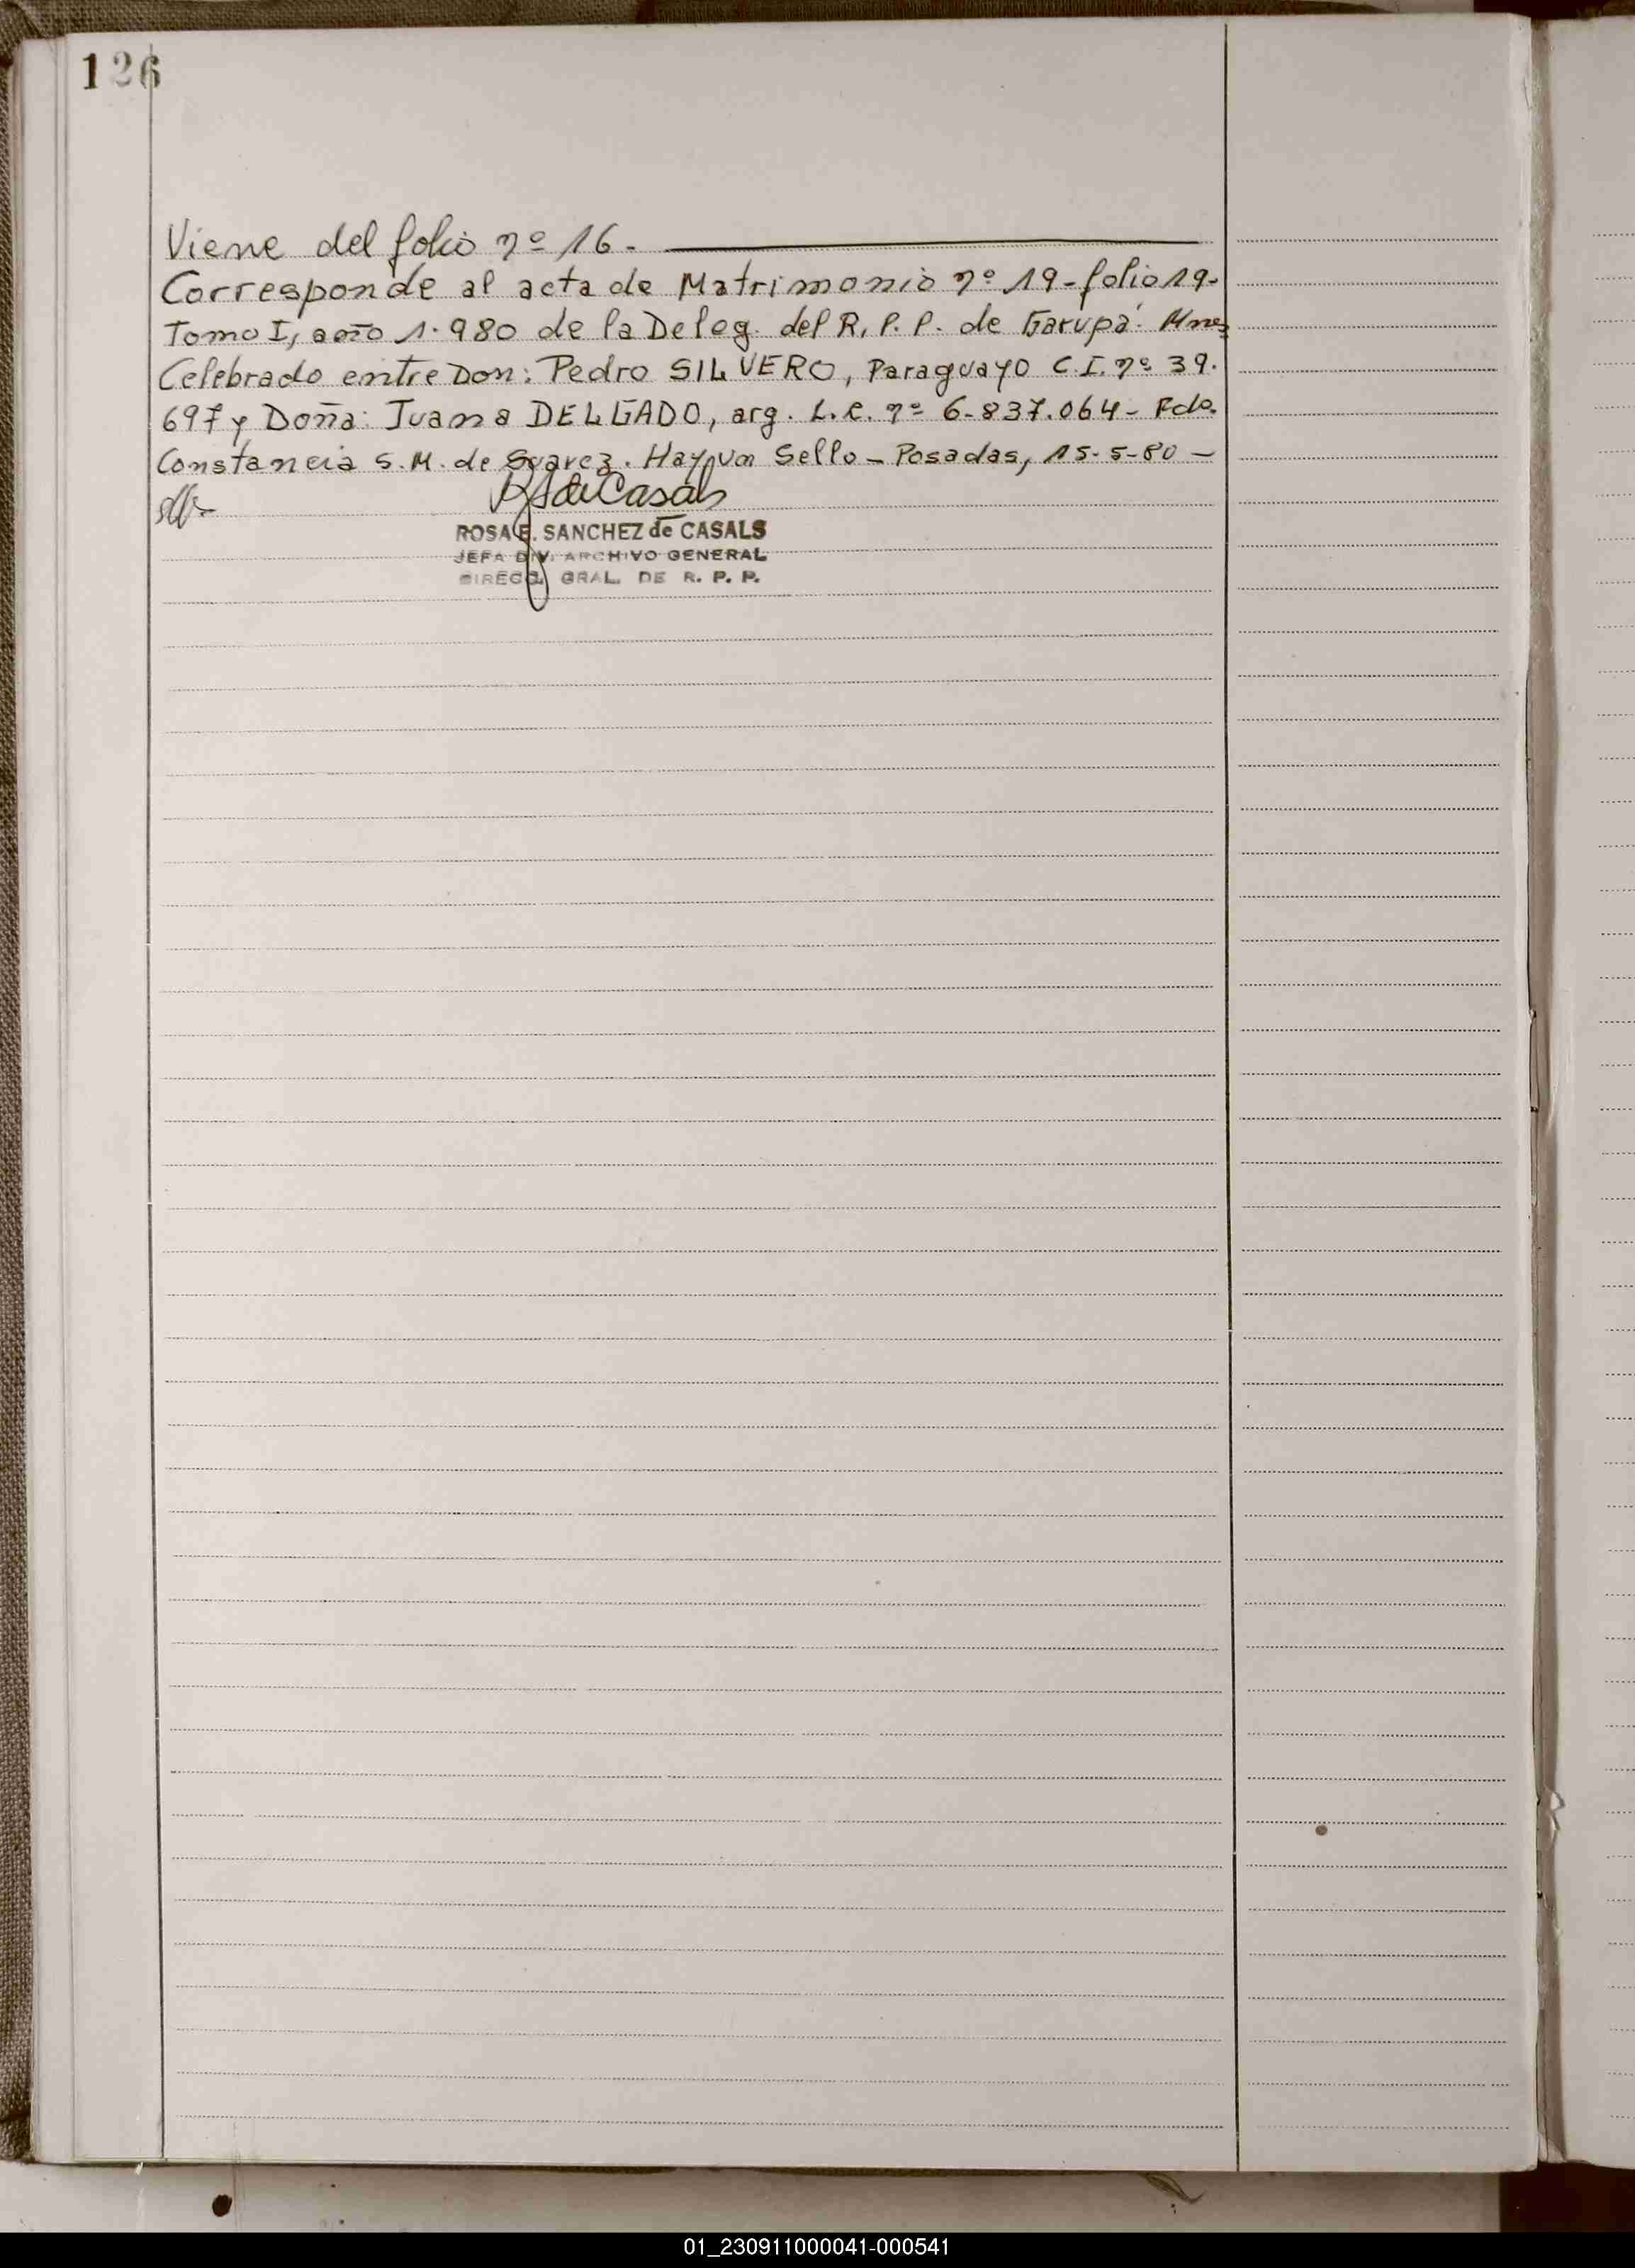 126
Viene del folio nº 16.
Corresponde al acta de Matrimonio nº 19-folio 19-
Tomo I, año 1.980 de la Deleg. del R. P. P. de Garupá. Mnes
Celebrado entre Don: Pedro SILVERO, Paraguayo C.I. nº 39.
697 y Doña: Juana DELGADO, arg. L.C. nº 6.837.064- Fdo.
Constancia S.M. de Suarez. Hay un Sello - Posadas, 15-5-80 -
RSdeCasals
ROSA E. SANCHEZ de CASALS
JEFA DIV. ARCHIVO GENERAL
DIRECC. GRAL. DE R. P. P.
01_230911000041-000541